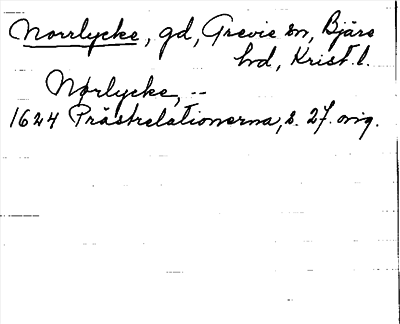 Norrlycke, gd, Grevie sn, Bjäre
hd, Krist. l.
Norlycke, --
1624 Prästrelationerna, s. 27. orig.